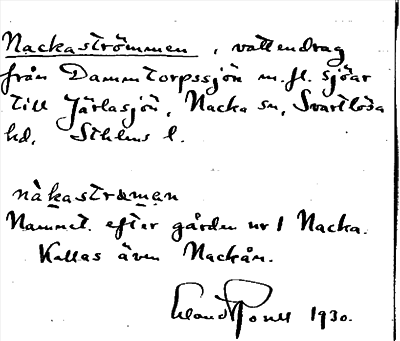 Nackaströmmen, vattendrag
från Dammtorpssjön m. fl. sjöar
till Järlasjön, Nacka sn, Svartlösa
hd, Sthlms l.
nàkastrømən
Namnet efter gården nr 1 Nacka.
Kallas även Nackån.
1930.